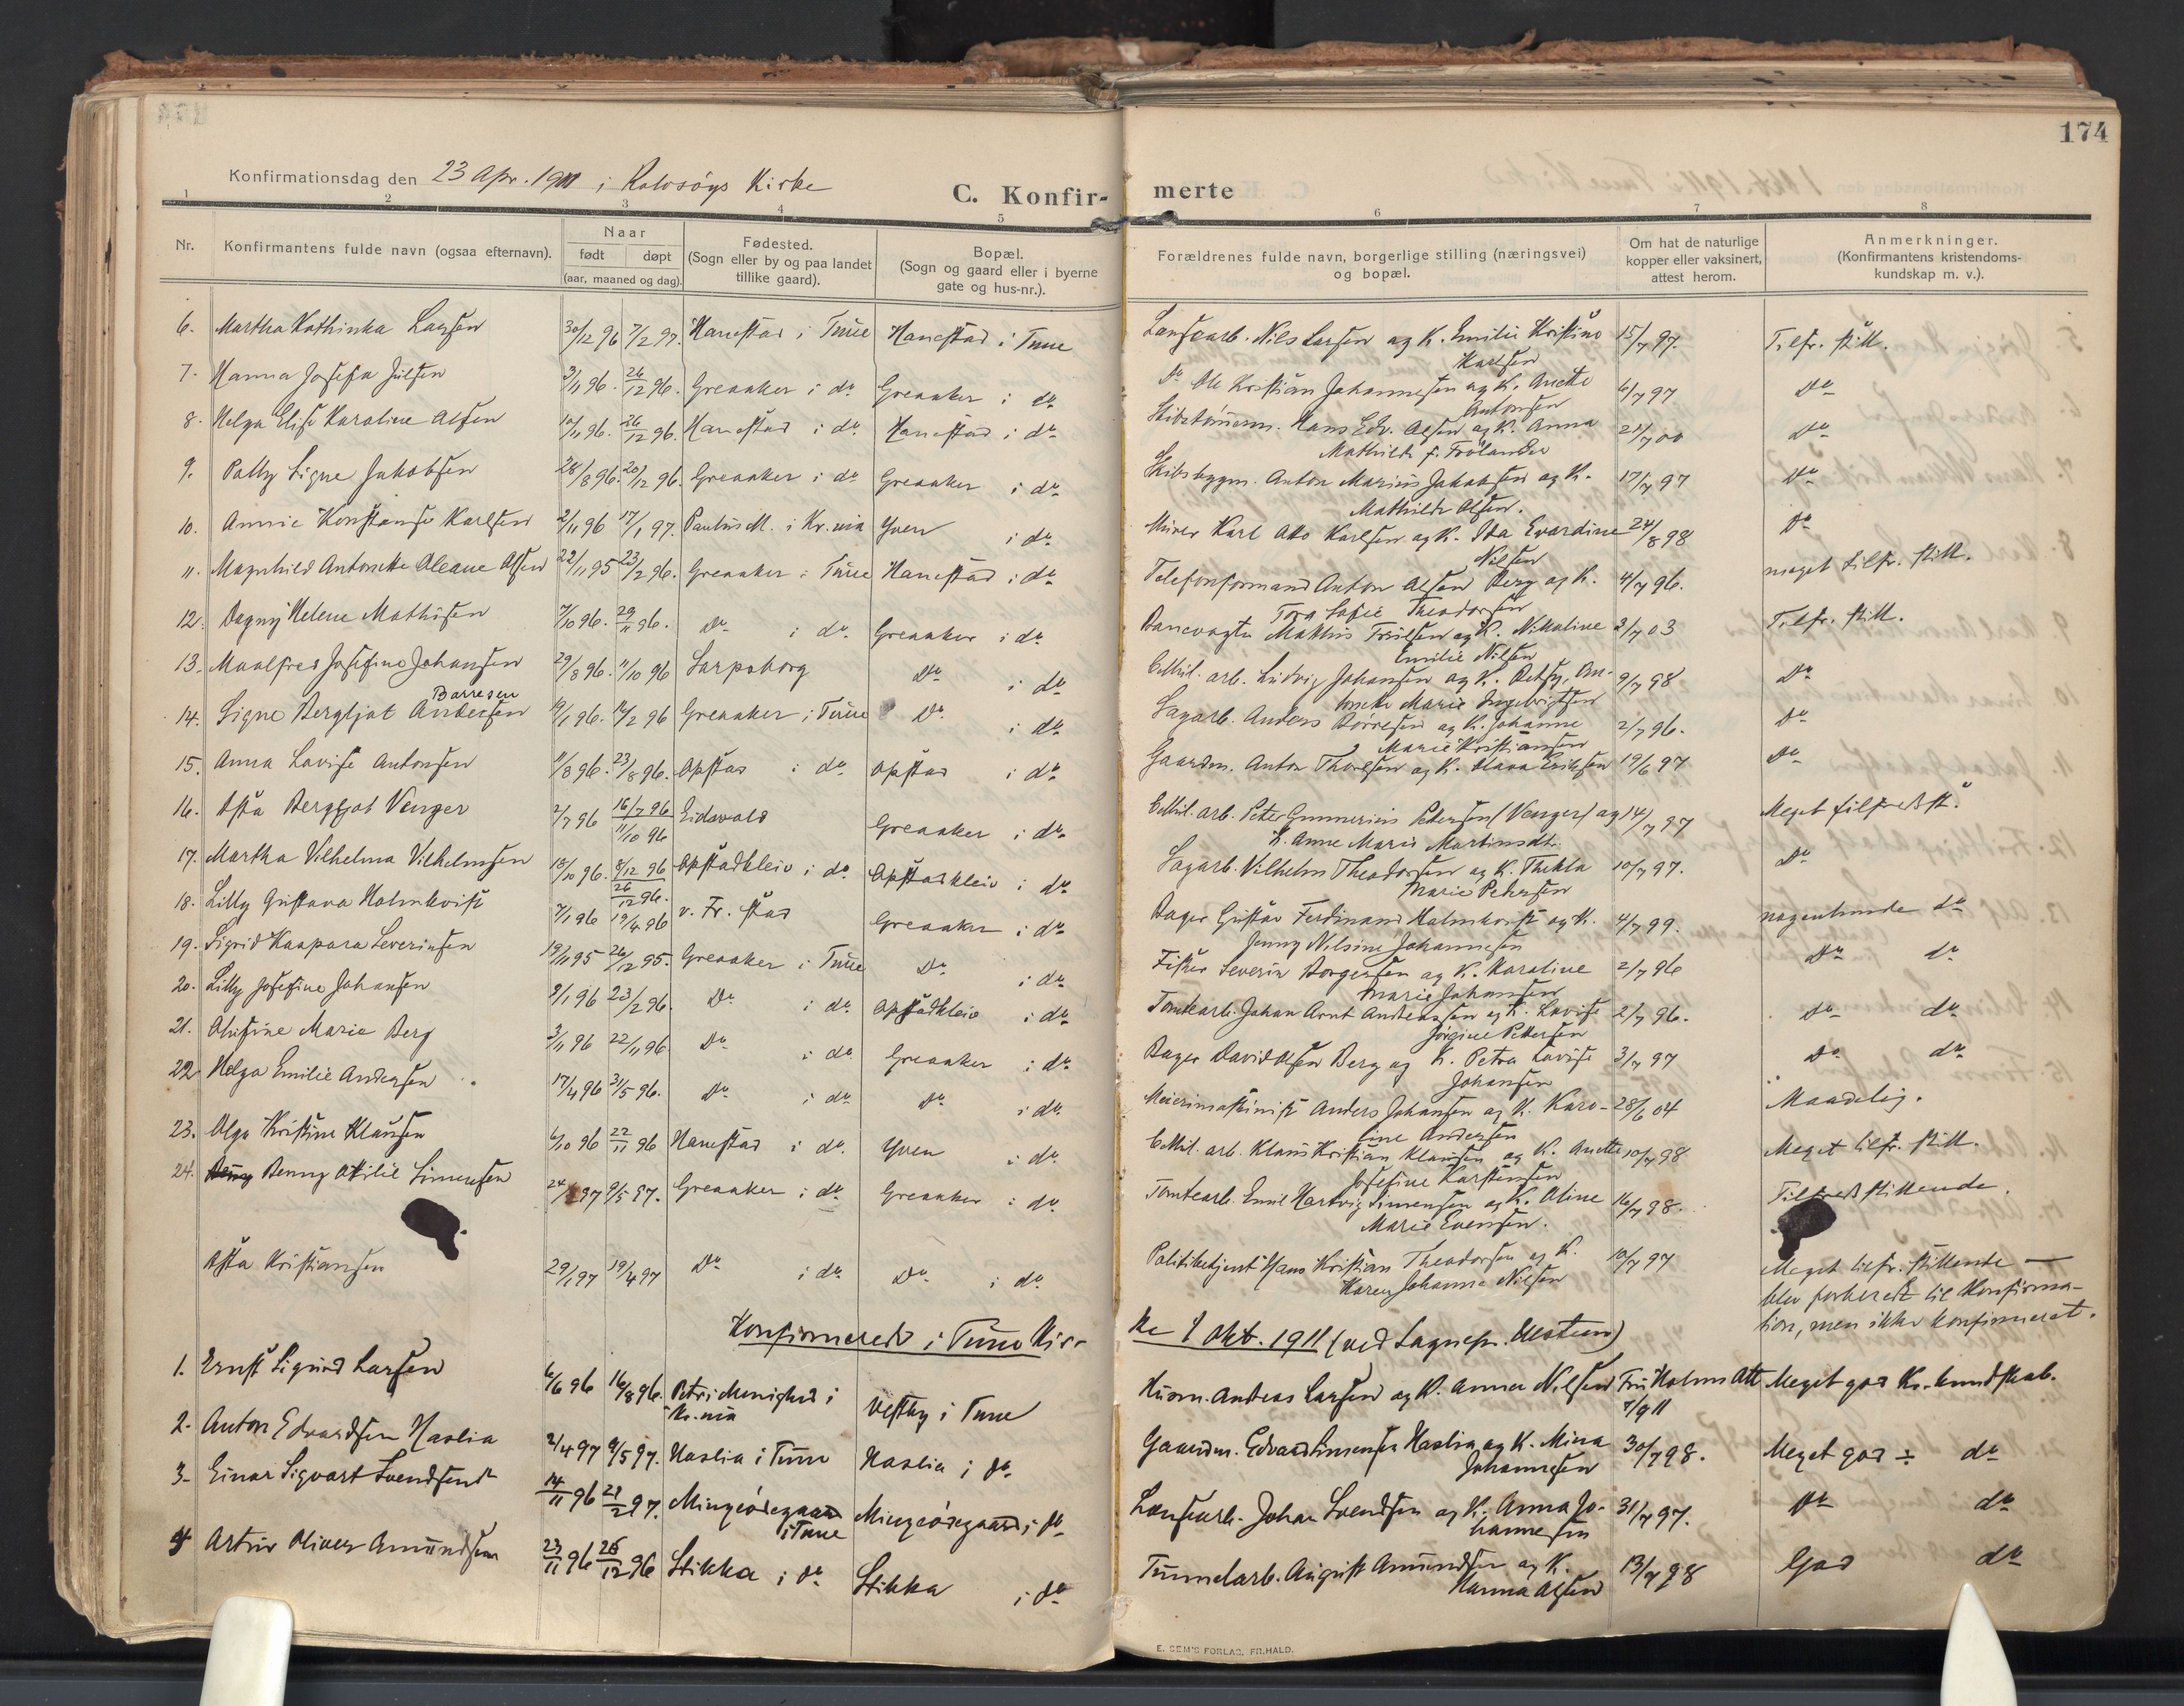 174
Konfirmationsdag den 23 Apr. 1911 i Rolvsøys Kirke
C. Konfir- merte
1 2 3 4 5 6 7 8
Nr. Konfirmantens fulde navn (ogsaa efternavn). Naar født døpt (aar, maaned og dag). Fødested. (Sogn eller by og paa landet tillike gaard). Bopæl. (Sogn og gaard eller i byerne gate og hus-nr.). Forældrenes fulde navn, borgerlige stilling (næringsvei) og bopæl. Om hat de naturlige kopper eller vaksinert, attest herom. Anmerkninger. (Konfirmantens kristendoms-kundskap m. v.).
6. Martha Kathinka Larsen 30/12 96 7/2 97. Hanestad i Tune Hanestad i Tune Lænsearb. Nils Larsen og K. Emilie Kristine 15/7 97. Tilfr. still.
Karlsen
7. Hanna Josefa Julsen 3/11 96. 26/12 96. Greaaker i do Greaaker i do Do Ole Kristian Johannesen og K. Anette 6/7 97 Do
Antonsen
8. Helga Elise Karoline Olsen 10/11 96. 26/12 96. Hanestad i do Hanestad i do Skibstømerm. Hans Edv. Olsen og K. Anna 21/7 00 Do
Mathilde f. Frølander
9. Polly Signe Jakobsen 28/8 96. 20/12 96. Greaaker i do Greaaker i do Skibsbyggm. Anton Marius Jakobsen og K. 17/7 97 Do
Mathilde Olsen.
10. Annie Konstanse Karlsen 2/11 96 17/1 97. Paulus M. i Kr.nia Yven i do Murer Karl Otto Karlsen og K. Ida Evardine 24/8 98 Do
Nilsen
11. Magnhild Antonette Oleane Olsen 22/11 95 23/2 96. Greaaker i Tune Hanestad i do Telefonformand Anton Olsen Berg og K. 4/7 96. meget tilfr. still.
Tora Sofie Theodorsen
12. Dagny Helene Mathisen 7/10 96. 29/11 96. Do i do. Greaaker i do Banevogter Mathis Truilsen og K. Nikoline 2/7 03 Tilfr. still.
Emilie Nilsen
13. Maalfred Josefine Johansen 29/8 96. 11/10 96 Sarpsborg Do i do Cellul. arb. Ludvig Johansen og K. Betsy, An- 9/7 98 Do
nette Marie Ingebrigtsen
Børresen
14. Signe Bergljot Andersen 19/1 96. 16/2 96 Greaaker i Tune Do i do Sagarb. Anders Børresen og K. Johanne 2/7 96. Do
Marie Kristiansen
15. Anna Lovise Antonsen 11/8 96. 23/8 96. Opstad i do Opstad i do Gaardm. Anton Thorlsen og K. Olava Eriksen 19/6 97 Do
16. Asta Bergljot Venger 2/7 96 16/7 96 Eidsvold Greaaker i do Cellul. arb. Peter Gunnerius Petersen (Venger) og 14/7 97 Meget tilfredsst.
11/10 96 K. Anne Marie Martinsdt.
17. Martha Vilhelma Vilhelmsen 18/10 96. 8/12 96 Opstadkleiv i do Opstadkleiv i do Sagarb. Vilhelm Theodorsen og K. Thekla 10/7 97. Do
26/12 96. Marie Petersen
18. Lilly Gustava Holmkvist 7/1 96 19/4 96 v. Fr. stad Greaaker i do Bager Gustav Ferdinand Holmkvist og K. 4/7 99. nogenlunde do
Jenny Nilsine Johannesen
19. Sigrid Kaspara Severinsen 19/11 95 26/12 95. Greaaker i Tune Do i do Fisker Severin Borgersen og K. Karoline 2/7 96 Do do
Marie Johansen
20. Lilly Josefine Johansen 9/1 96 23/2 96. Do i do Opstadkleiv i do Tomtearb. Johan Arnt Andreassen og K. Lovise 2/7 96. Do do
Jørgine Pettersen
21. Olufine Marie Berg 3/11 96 22/11 96 Do i do Greaaker i do Bager David Olsen Berg og K. Petra Lovise 3/7 97 Do do
Johansen
22 Helga Emilie Andersen 17/4 96 31/5 96. Do i do Do i do Meierimaskinist Anders Johansen og K. Karo- 28/6 04 Maadelig.
line Andersen
23. Olga Kristine Klausen 6/10 96 22/11 96 Hanestad i do Yven i do Cellul. arb. Klaus Kristian Klausen og K. Anette 10/7 98 Meget tilfr. still.
Josefine Karstensen
24. Benny Otilie Simensen 24/2 97 9/5 97. Greaaker i do Greaaker i do Tomtearb. Emil Hartvig Simensen og K. Oline 16/7 98. Tilfredsstillende.
Marie Evensen.
Asta Kristiansen 29/1 97 19/4 97 Do i do Do i do Politibetjent Hans Kristian Theodorsen og K. 10/7 97 Meget tilfr. stillende —
Karen Johanne Nilsen blev forberedt til Konfirma-
tion, men ikke konfirmeret.
Konfirmerede i Tune Kir- ke 1 Okt. 1911 (ved Sognepr. Ulstein)
1. Ernst Sigurd Larsen 6/6 96 16/8 96. Petri Menighed i Kr.nia Vestby i Tune Husm. Andreas Larsen og K. Anna Nilsen Fru Holms Att 7/9 11 Meget god Kr. kundskab.
2. Anton Edvardsen Haslia 2/4 97 9/5 97. Haslia i Tune Haslia i do Gaardm. Edvard Simensen Haslia og K. Mina 30/7 98. Meget god ÷ do
Johannesen
3. Einar Sigvart Svendsen 14/11 96 28/2 97. Mingeødegaard i Tune Mingeødegaard i do Lænsearb. Johan Svendsen og K. Anna Jo- 31/7 97. Do do
hannesen
4 Artur Oliver Amundsen 23/11 96 26/12 96 Stikka i do Stikka i do Tunnelarb. August Amundsen og K. 13/7 98 God do
Hanna Olsen
E. SEM'S FORLAG, FR.HALD.